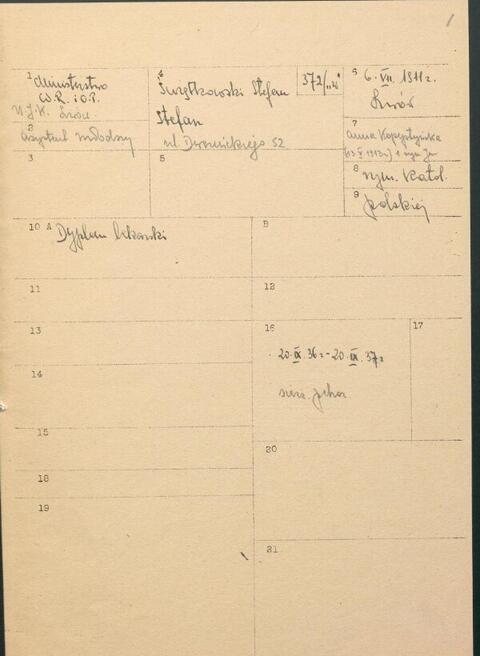 1
1 Ministerstwo
W.R. i O.P.
U.J.K. Lwów
2
asystent młodszy
3
4
Świątkowski Stefan
Stefan
ul. Dwernickiego 52
372/
5
6 6. VII. 1911 r.
Lwów
7
Anna Kopystyńska
8 rzym. Katol.
9 polskiej
10 A Dyplom lekarski
B
11
12
13
14
15
16
20. IX. 36 r. - 20. IX. 37 r.
17
18
19
20
21